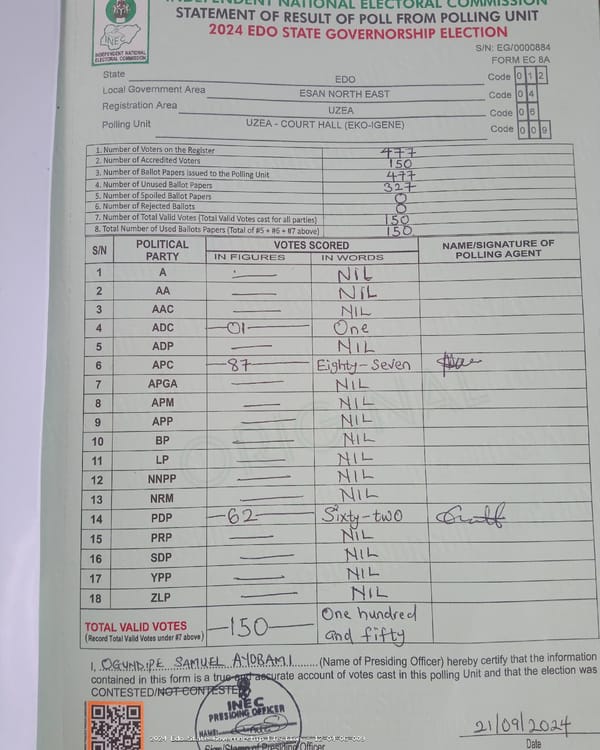 INDEPENDENT NATIONAL ELECTORAL COMMISSION
STATEMENT OF RESULT OF POLL FROM POLLING UNIT
2024 EDO STATE GOVERNORSHIP ELECTION
INEC
INDEPENDENT NATIONAL
ELECTORAL COMMISSION
S/N: EG/0000884
FORM EC 8A
State EDO Code 0 1 2
Local Government Area ESAN NORTH EAST Code 0 4
Registration Area UZEA Code 0 6
Polling Unit UZEA - COURT HALL (EKO-IGENE) Code 0 0 9
1. Number of Voters on the Register 477
2. Number of Accredited Voters 150
3. Number of Ballot Papers issued to the Polling Unit 477
4. Number of Unused Ballot Papers 327
5. Number of Spoiled Ballot Papers 0
6. Number of Rejected Ballots 0
7. Number of Total Valid Votes (Total Valid Votes cast for all parties) 150
8. Total Number of Used Ballot Papers (Total of #5 + #6 + #7 above) 150
S/N POLITICAL PARTY VOTES SCORED NAME/SIGNATURE OF POLLING AGENT
IN FIGURES IN WORDS
1 A — NIL
2 AA — NIL
3 AAC — NIL
4 ADC —01— One
5 ADP — NIL
6 APC —87— Eighty-Seven
7 APGA — NIL
8 APM — NIL
9 APP — NIL
10 BP — NIL
11 LP — NIL
12 NNPP — NIL
13 NRM — NIL
14 PDP —62— Sixty-two
15 PRP — NIL
16 SDP — NIL
17 YPP — NIL
18 ZLP — NIL
TOTAL VALID VOTES —150— One hundred
(Record Total Valid Votes under #7 above) and fifty
I, OGUNDIPE SAMUEL AYOBAMI (Name of Presiding Officer) hereby certify that the information
contained in this form is a true and accurate account of votes cast in this polling Unit and that the election was
CONTESTED/NOT CONTESTED
INEC
PRESIDING OFFICER
NAME:
21/09/2024
Sign/Stamp of Presiding Officer
Date